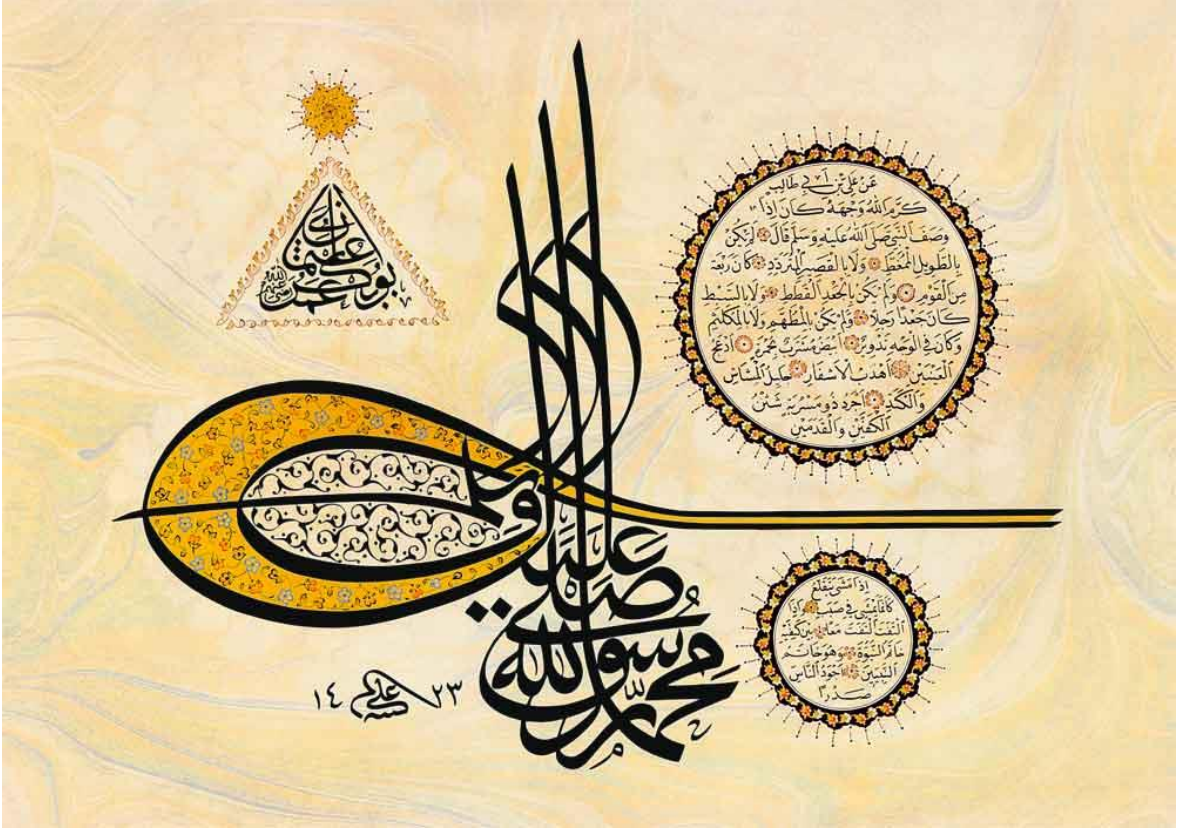 عن علي بن أبي طالب
كرم الله وجهه كان إذا
وصف النبي صلى الله عليه وسلم قال لم يكن
بالطويل الممغط ولا بالقصير المتردد كان ربعة
من القوم ولم يكن بالجعد القطط ولا بالسبط
كان جعدا رجلا ولم يكن بالمطهم ولا بالمكلثم
وكان في الوجه تدوير أبيض مشرب بحمرة أدعج
العينين أهدب الأشفار جليل المشاش
والكتد أجرد ذو مسربة شثن
الكفين والقدمين
أبو بكر عمر عثمان علي
رضي الله عنهم
محمد رسول الله صلى الله عليه وسلم
إذا مشى يتقلع
كأنما يمشي في صبب وإذا
التفت التفت معا بين كتفيه
خاتم النبوة وهو خاتم
النبيين أجود الناس
صدرا
١٤٢٣